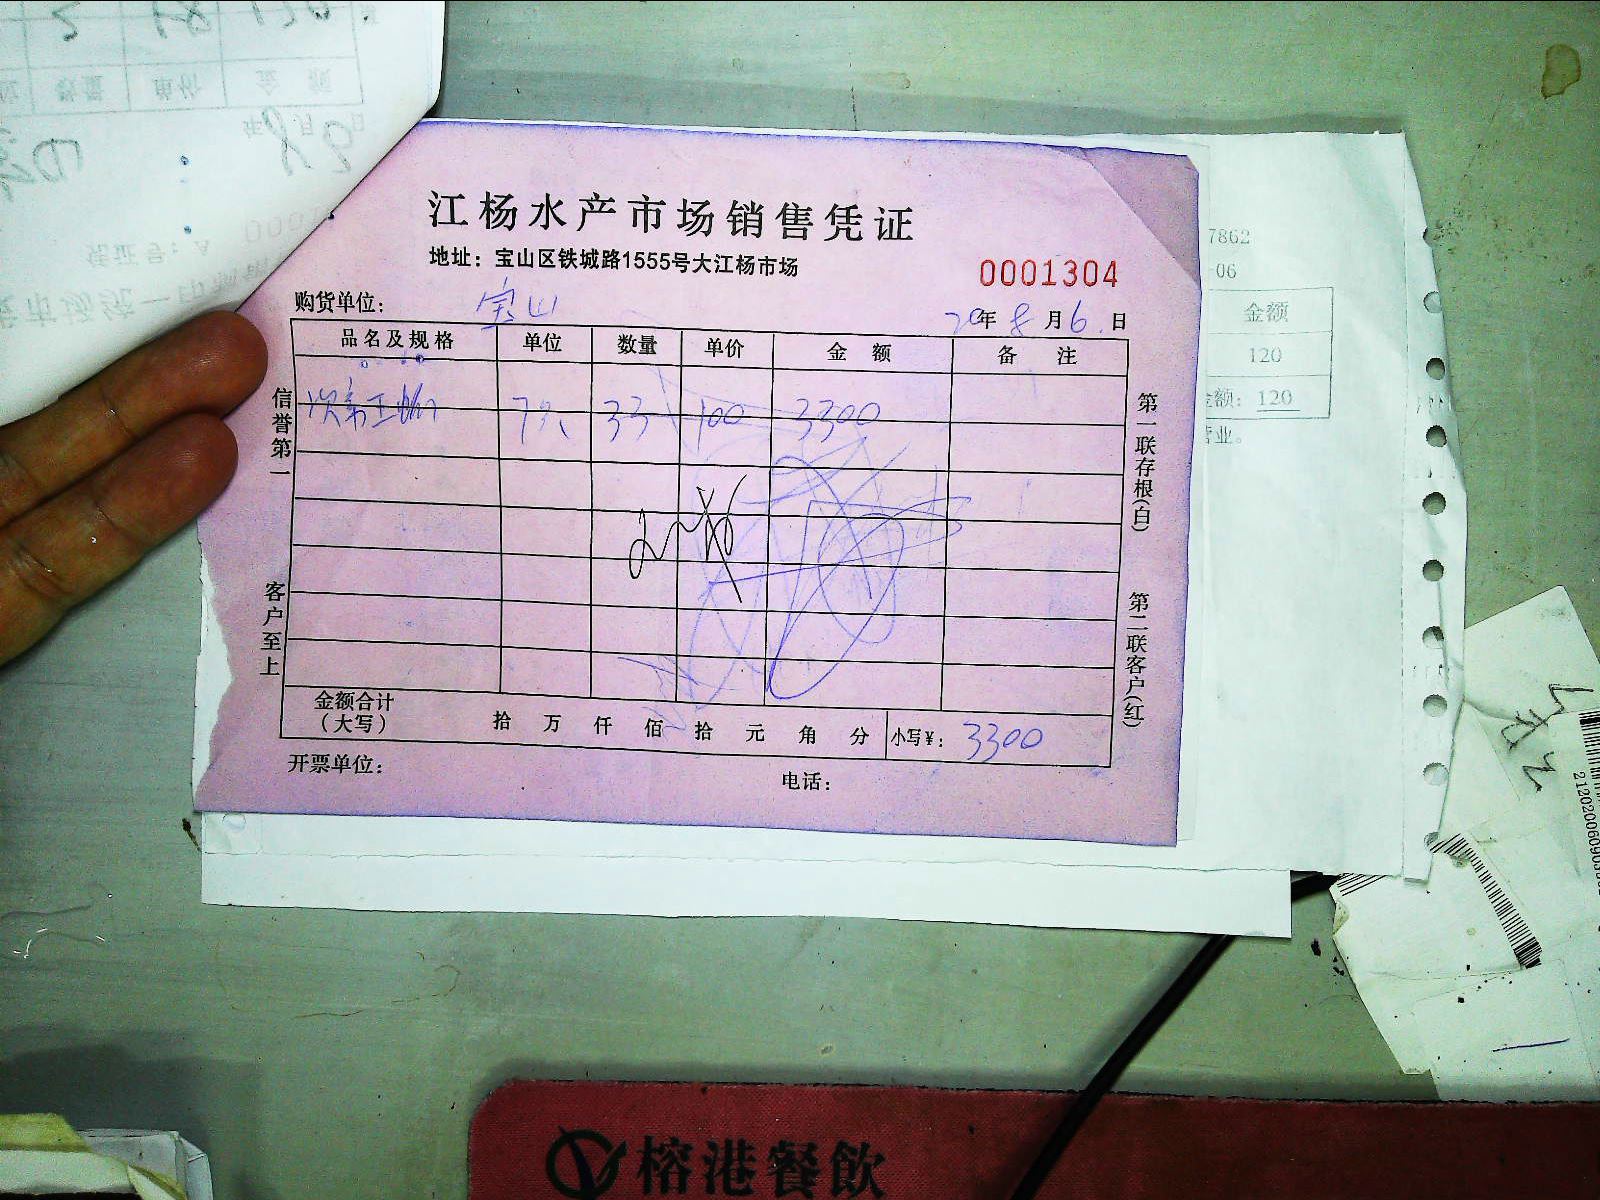 江杨水产市场销售凭证
地址：宝山区铁城路1555号大江杨市场
0001304
购货单位：宝山
20年8月6日
品名及规格 单位 数量 单价 金额 备注
33 100 3300
金额合计（大写） 拾 万 仟 佰 拾 元 角 分 小写¥：3300
开票单位： 电话：
信誉第一
客户至上
第一联存根(白)
第二联客户(红)
7862
-06
金额
120
金额：120
营业。
数量 单价 金额
年8月 日
凭证号：A 000
榕港餐飲